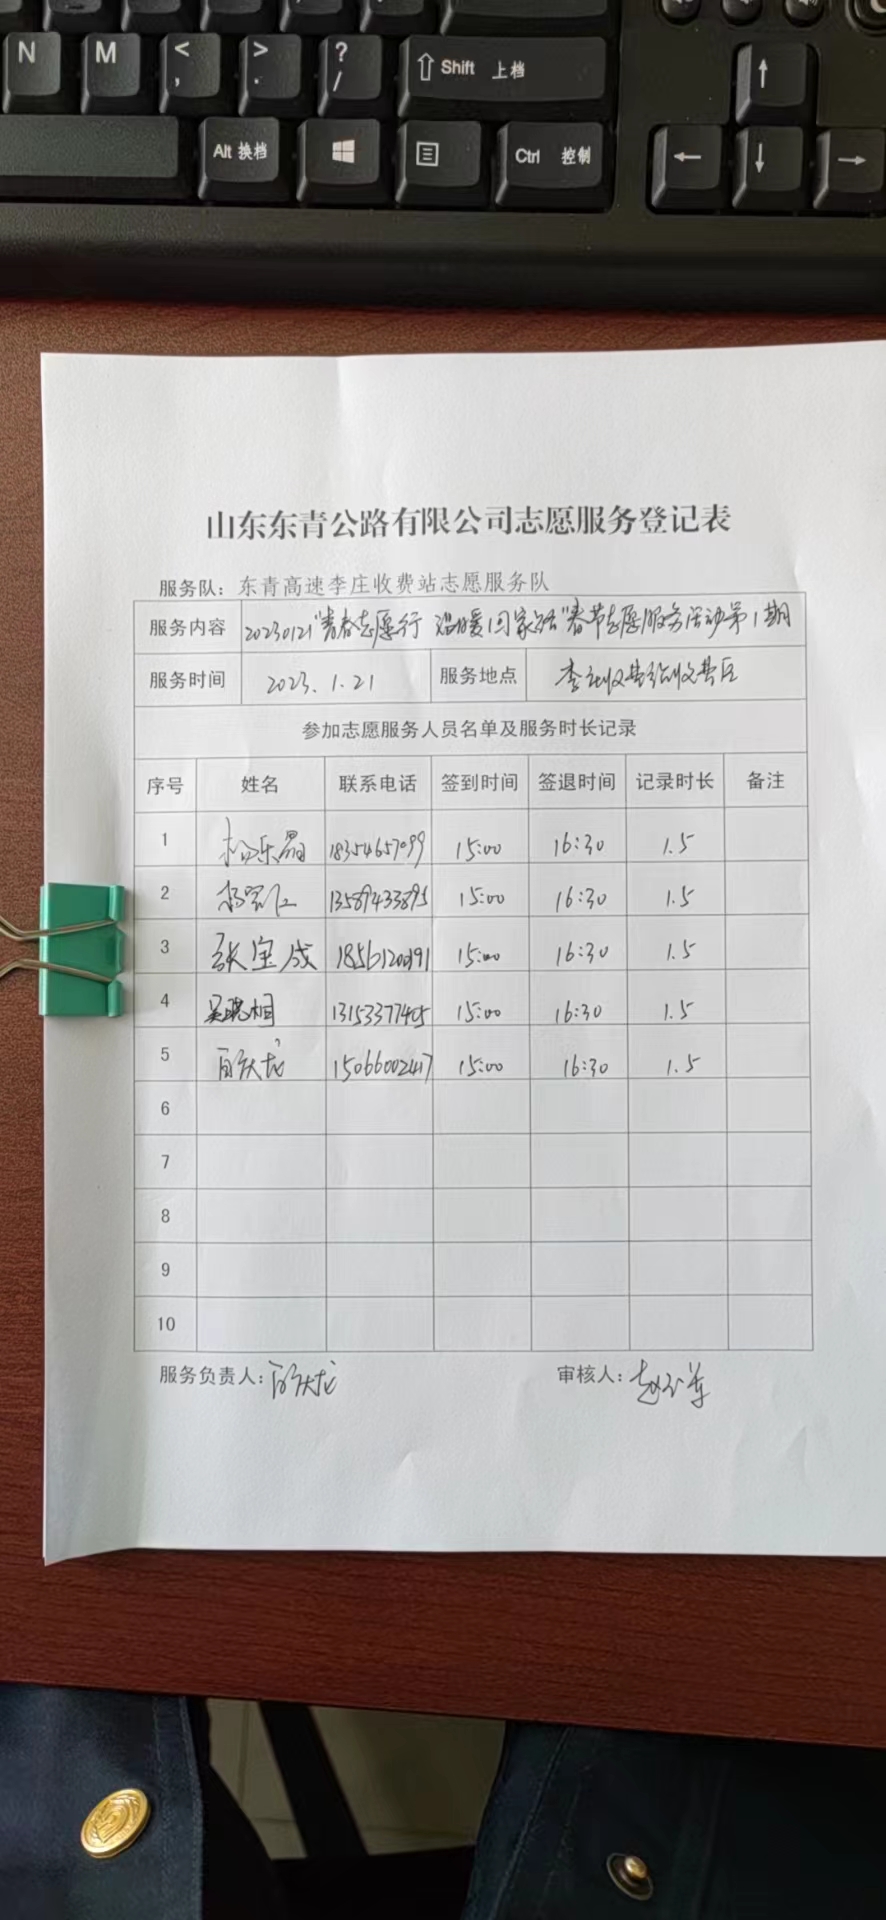 N M < , > . ? / Shift 上档 ↑
Alt 换档 Ctrl 控制 ← ↓ →
山东东青公路有限公司志愿服务登记表
服务队：东青高速李庄收费站志愿服务队
服务内容 20230121"青春志愿行 温暖回家路"春节志愿服务活动第1期
服务时间 2023.1.21 服务地点 李庄收费站收费区
参加志愿服务人员名单及服务时长记录
序号 姓名 联系电话 签到时间 签退时间 记录时长 备注
1 18354657099 15:00 16:30 1.5
2 13589433895 15:00 16:30 1.5
3 张宝成 15:00 16:30 1.5
4 13153377405 15:00 16:30 1.5
5 15066002417 15:00 16:30 1.5
6
7
8
9
10
服务负责人： 审核人：